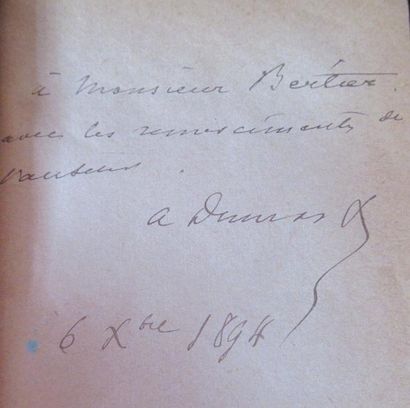 à Monsieur Bertier.
avec les remerciments de
l'auteur.
A Dumas f
6 Xbre 1894